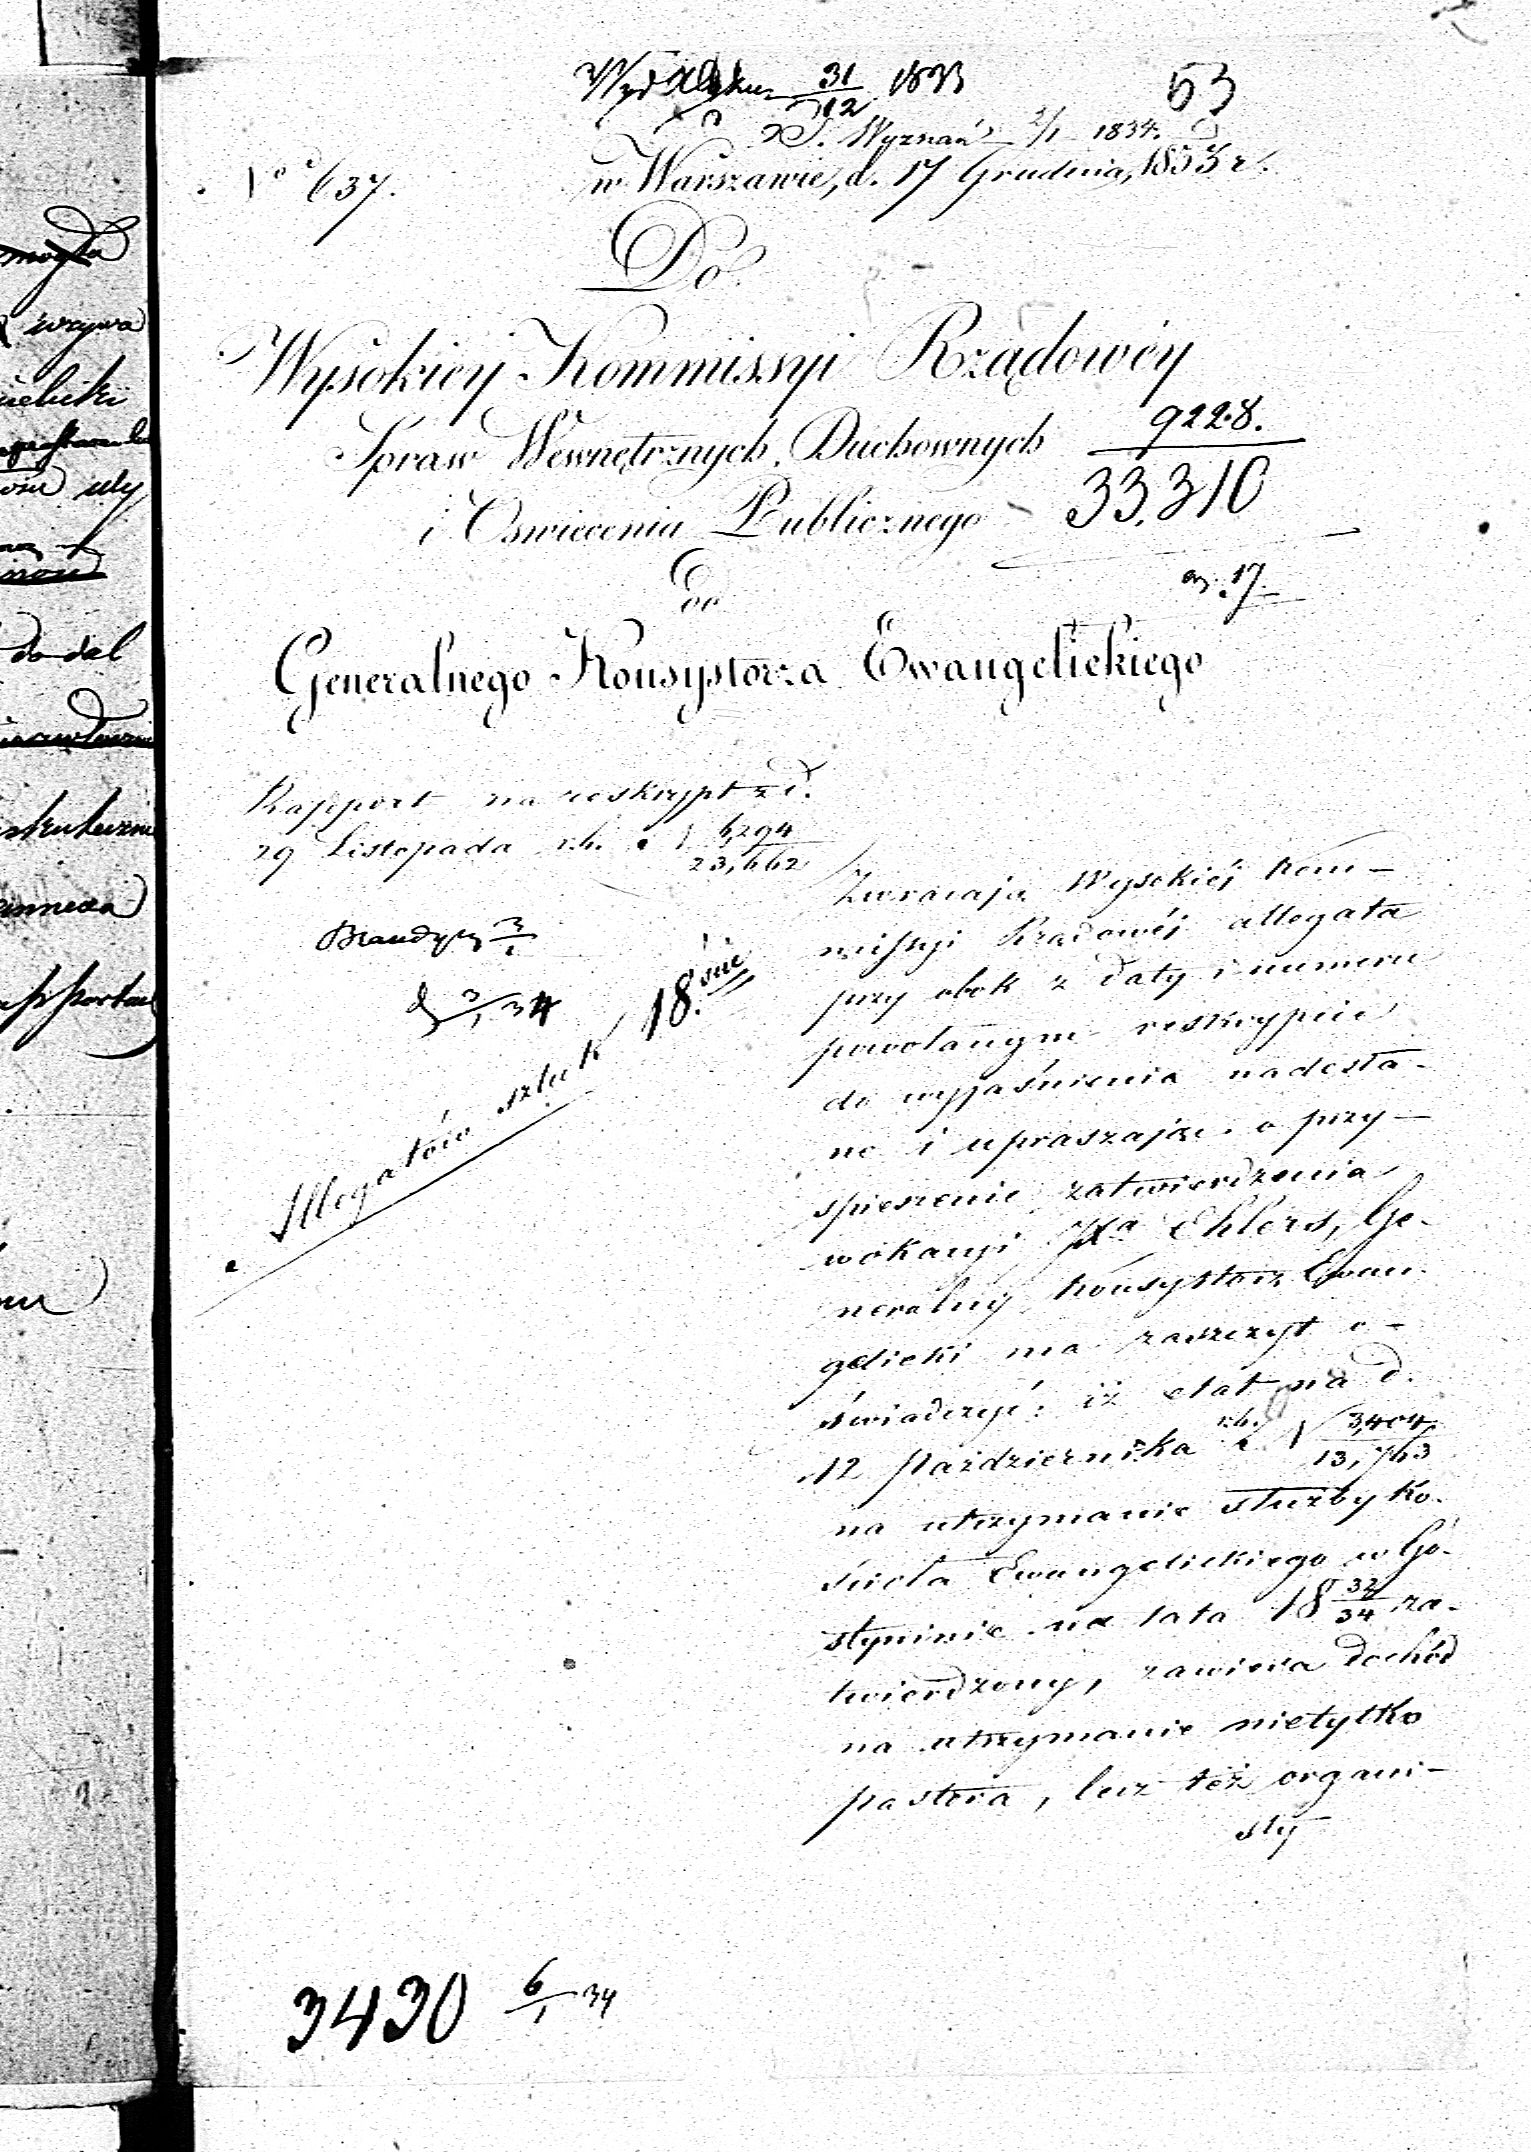 31/12 1833
53
W. Wyznań 2/1 1834.
No 637.
w Warszawie, d. 17 Grudnia, 1833 r.
Do
Wysokiey Kommissyi Rządowéy
Spraw Wewnętrznych, Duchownych
i Oswiecenia Publicznego
9228.
33,310
17
Od
Generalnego Konsystorza Ewangelickiego
Rapport na reskrypt z d.
29 Listopada r.b. N 6,294/23,662
3/1 34
Allegatów sztuk 18.
Zwracając Wysokiéj Kom-
missyi Rządowéj allegata
przy obok z daty i numeru
powołanym reskrypcie
do wyjaśnienia nadesła-
ne i upraszając o przy-
spieszenie zatwierdzenia
wokacyi Xa Ehlers, Ge-
neralny Konsystorz Ewan-
gelicki ma zaszczyt o-
świadczyć: iż etat na d.
12 Października r.b. N 3,404/13,763
na utrzymanie służby ko-
ścioła Ewangelickiego w Go-
styninie na lata 18 32/34 za-
twierdzony, zawiera dochód
na utrzymanie nietylko
pastora, lecz też organi-
sty
3430 6/1 34
mogła
wzywa
do dal